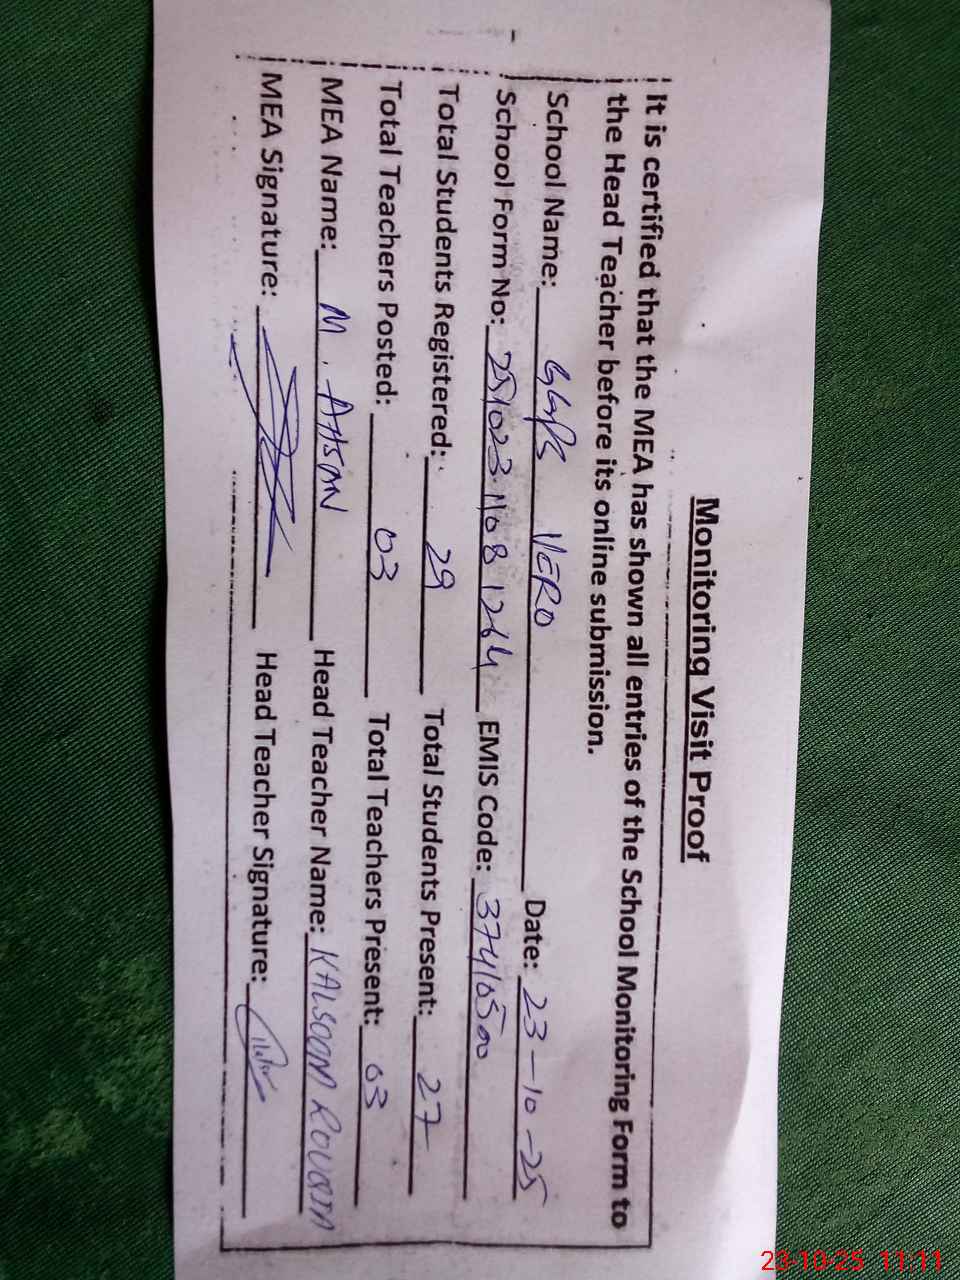 Monitoring Visit Proof
It is certified that the MEA has shown all entries of the School Monitoring Form to
the Head Teacher before its online submission.
School Name: GGPS VERO Date: 23-10-25
School Form No: 251023-1108 1264 EMIS Code: 37410500
Total Students Registered: 29 Total Students Present: 27
Total Teachers Posted: 03 Total Teachers Present: 03
MEA Name: M. AHSAN Head Teacher Name: KALSOOM
MEA Signature: Head Teacher Signature:
23-10-25 11:11